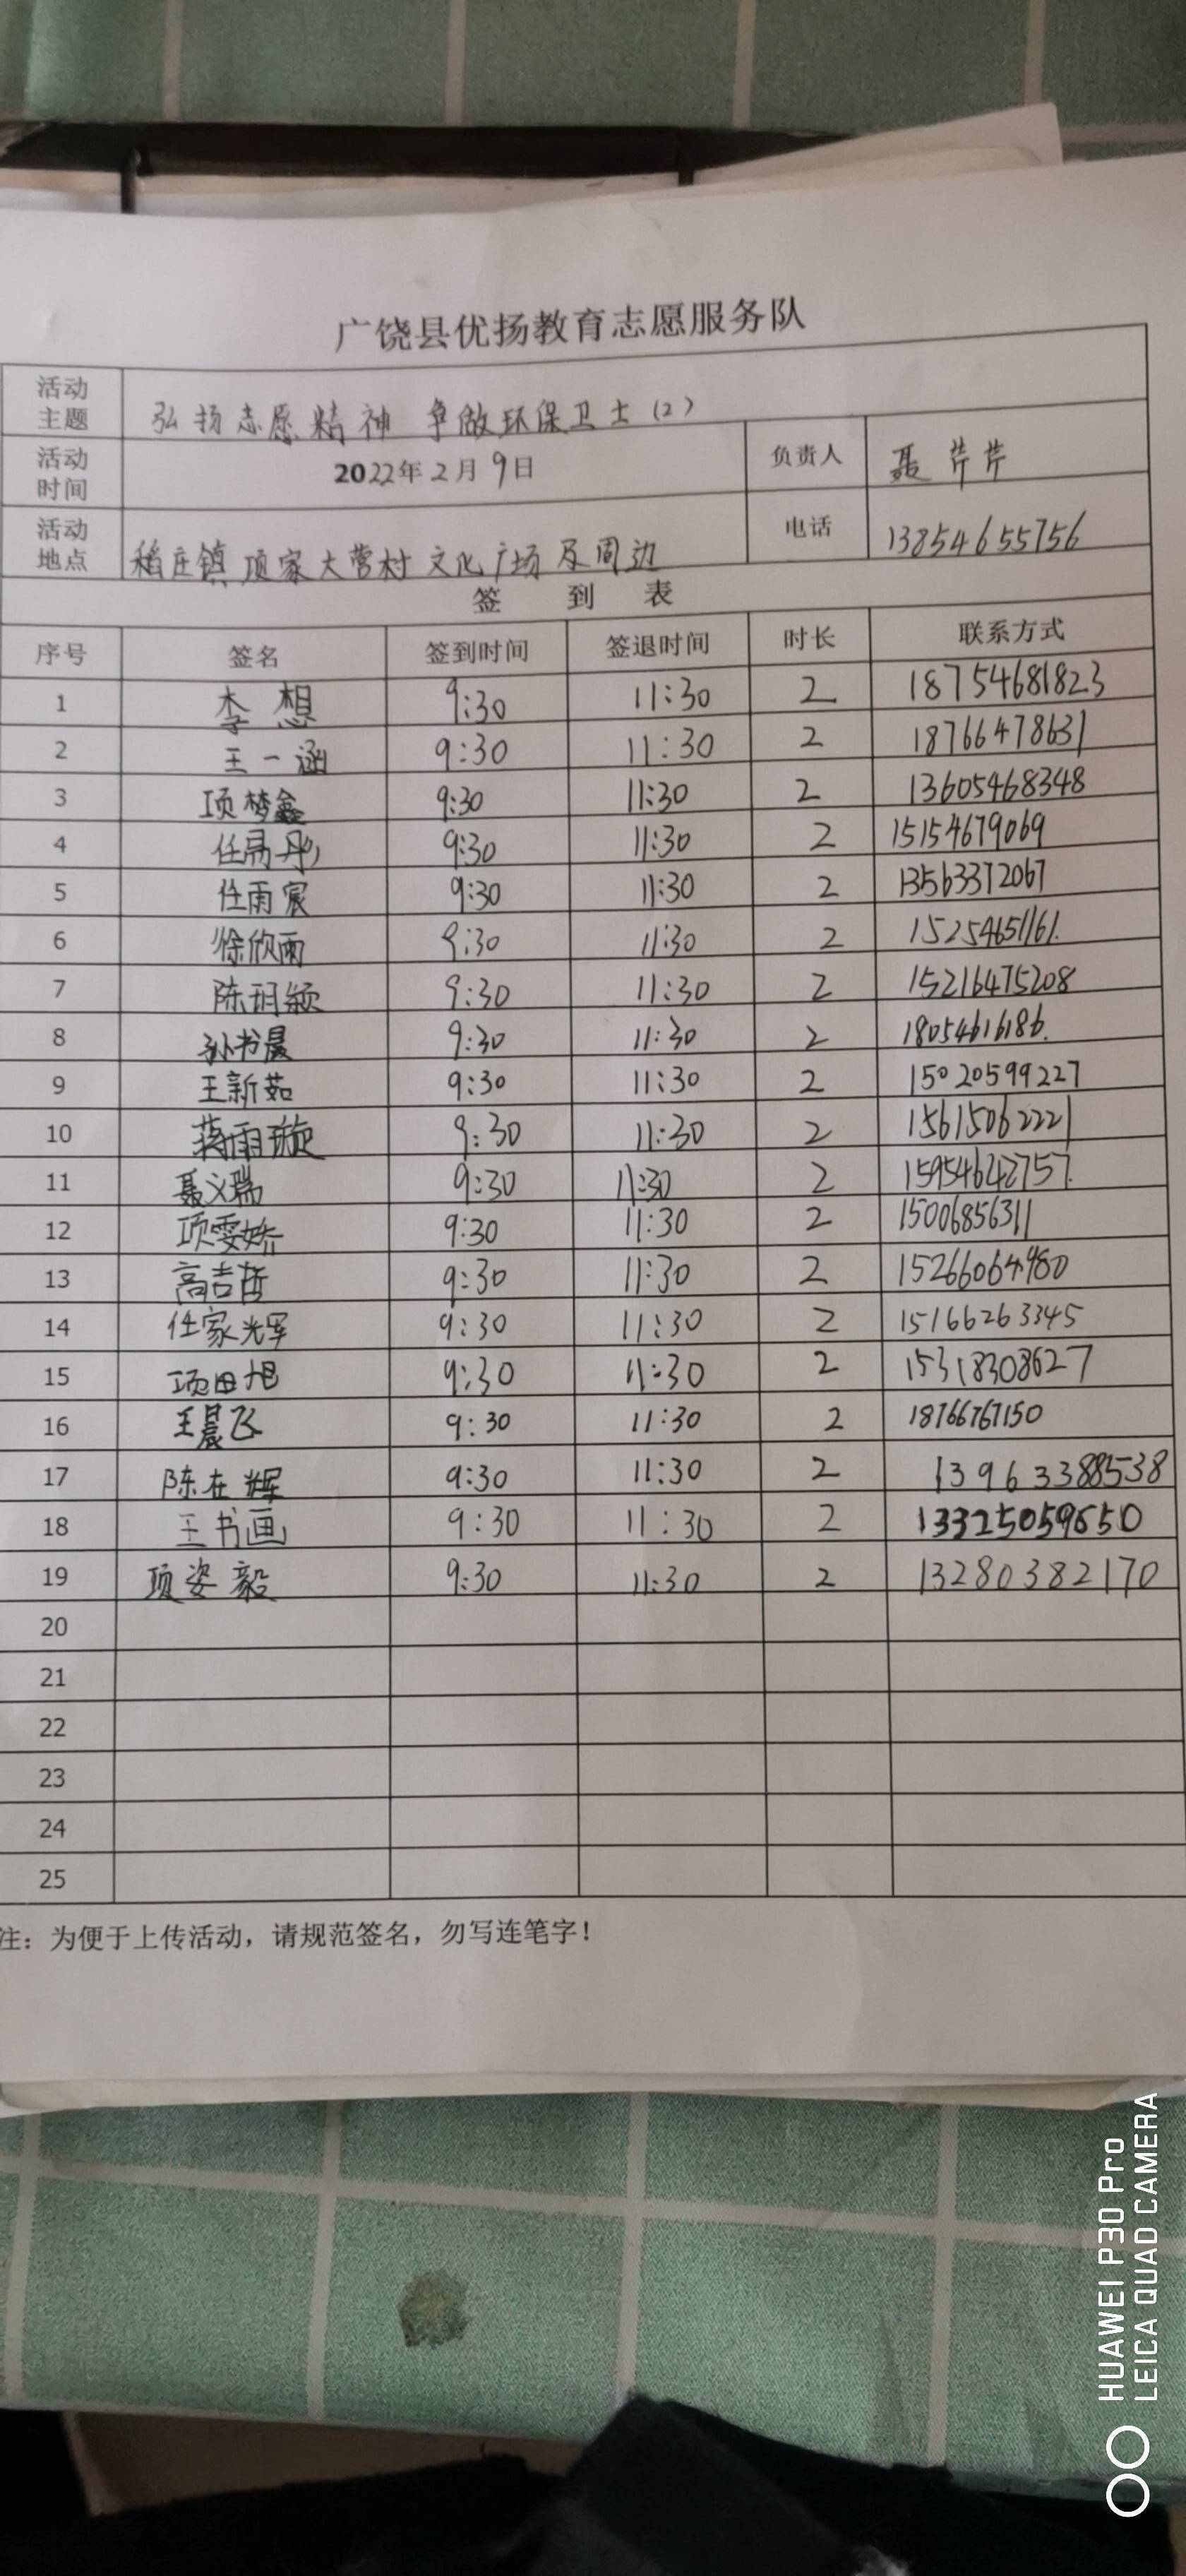 广饶县优扬教育志愿服务队
活动主题 弘扬志愿精神 争做环保卫士（2）
活动时间 2022年2月9日 负责人 聂芹芹
活动地点 稻庄镇项家大营村文化广场及周边 电话 13854655756
签 到 表
序号 签名 签到时间 签退时间 时长 联系方式
1 李想 9:30 11:30 2 18754681823
2 王一涵 9:30 11:30 2 18766478631
3 项梦鑫 9:30 11:30 2 13605468348
4 9:30 11:30 2 15154679069
5 任雨宸 9:30 11:30 2 13563372067
6 徐欣雨 9:30 11:30 2 15254651161.
7 陈玥颖 9:30 11:30 2 15216475208
8 孙书晨 9:30 11:30 2 18054616186.
9 王新茹 9:30 11:30 2 15020599227
10 蒋雨璇 9:30 11:30 2 15615062221
11 聂义瑞 9:30 11:30 2 15954642757.
12 项雯娇 9:30 11:30 2 15006856311
13 高吉哲 9:30 11:30 2 15266064980
14 任家辉 9:30 11:30 2 15166263345
15 项田旭 9:30 11:30 2 15318308627
16 王晨飞 9:30 11:30 2 18766767150
17 陈在辉 9:30 11:30 2 13963388538
18 王书画 9:30 11:30 2 13325059650
19 项姿毅 9:30 11:30 2 13280382170
20
21
22
23
24
25
注：为便于上传活动，请规范签名，勿写连笔字！
HUAWEI P30 Pro
LEICA QUAD CAMERA